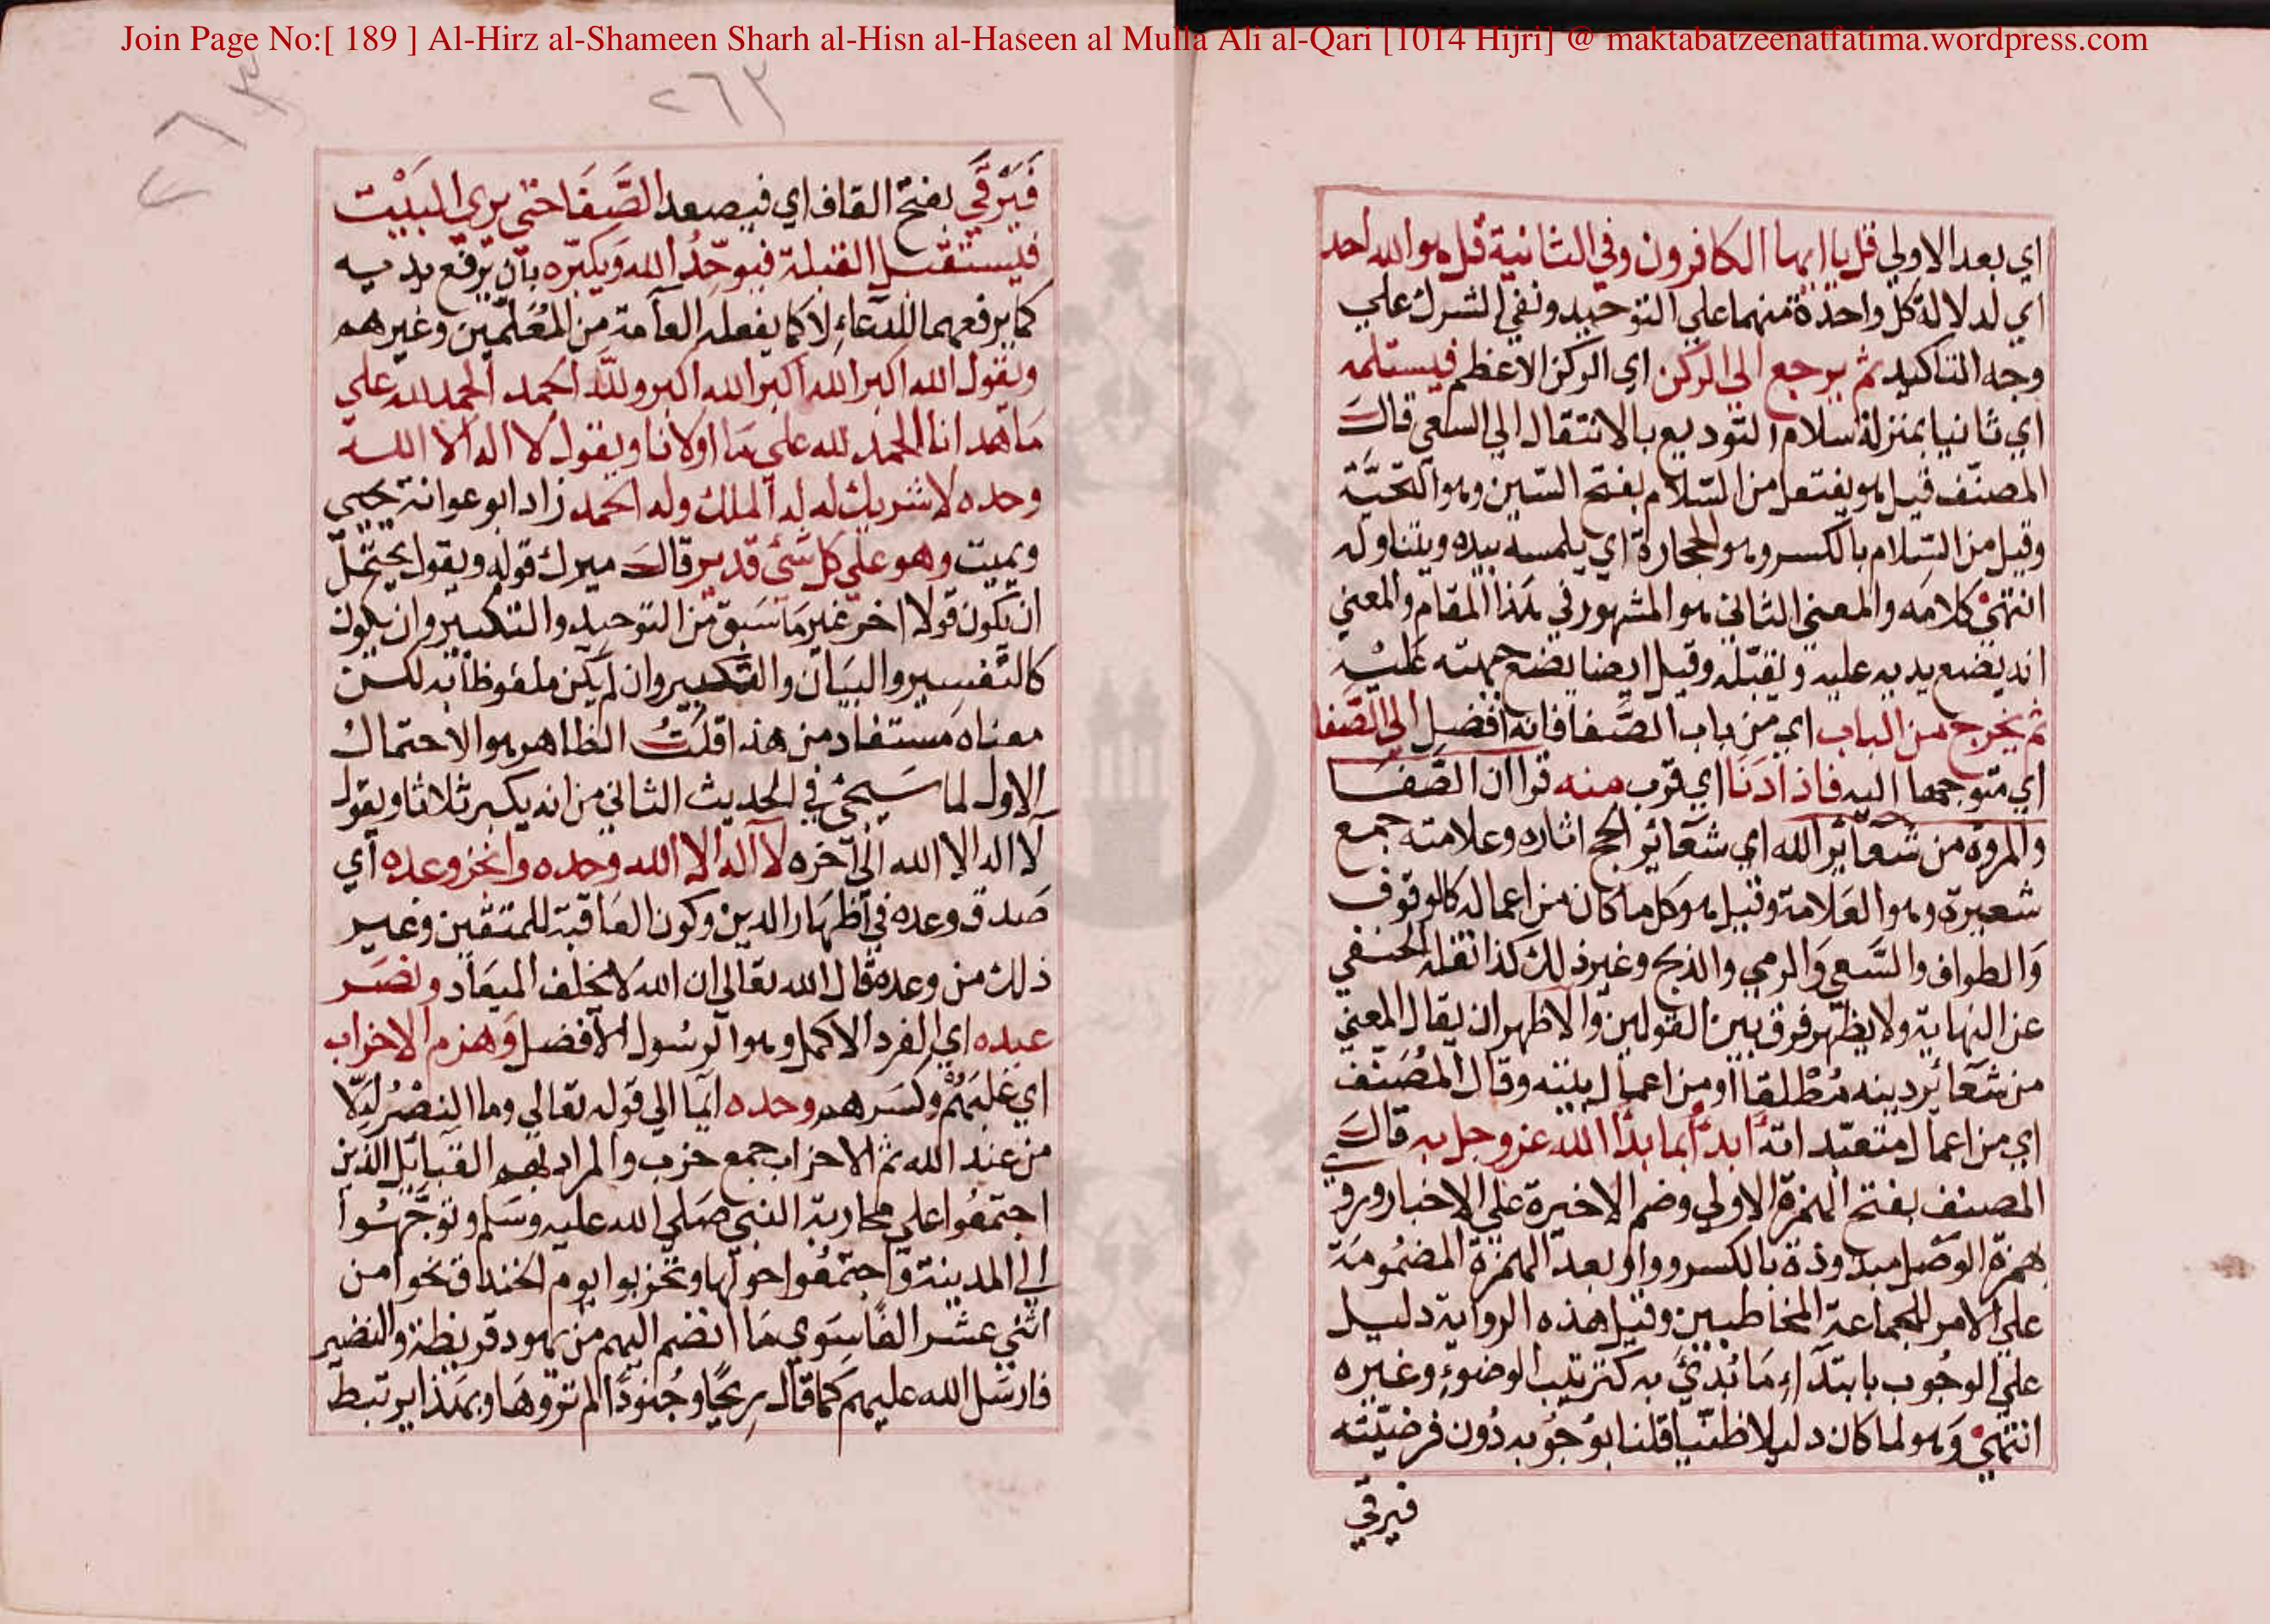 Join Page No:[ 189 ] Al-Hirz al-Shameen Sharh al-Hisn al-Haseen al Mulla Ali al-Qari [1014 Hijri] @ maktabatzeenatfatima.wordpress.com
اي بعد الاولي قل يا ايها الكافرون وفي الثانية قل هو الله احد
اي لدلالة كل واحدة منهما علي التوحيد ونفي الشرك علي
وجه التاكيد ثم يرجع الي الركن اي الركن الاعظم فيستلمه
اي ثانيا بمنزلة سلام التوديع بالانتقال الي السعي قال
المصنف قيل هو يفتعل من السلام بفتح السين وهو التحية
وقيل من السلام بالكسر وهو الحجارة اي يلمسه بيده ويتناوله
انتهي كلامه والمعني الثاني هو المشهور في هذا المقام والمعني
انه يضع يديه عليه ويقبله وقيل ايضا يضع جبهته عليه
ثم يخرج من الباب اي من باب الصفا فانه افضل الي الصفا
اي متوجها اليه فاذا دنا اي قرب منه قرا ان الصفا
والمروة من شعائر الله اي شعائر الحج اثاره وعلامته جمع
شعيرة وهو العلامة وقيل هو كل ما كان من اعماله كالوقوف
والطواف والسعي والرمي والذبح وغير ذلك كذا نقله الحنفي
عن النهاية ولا يظهر فرق بين القولين والاظهر ان يقال المعني
من شعائر دينه مطلقا او من اعمال بيته وقال المصنف
اي من اعمال متعبداته ابدأ بما بدأ الله عز وجل به قال
المصنف بفتح الهمزة الاولي وضم الاخيرة علي الاخبار وروي
همزة الوصل مبدوذة بالكسر وواو بعد الهمزة المضمومة
علي الامر للجماعة المخاطبين وقيل هذه الرواية دليل
علي الوجوب بابتداء ما بدئ به كترتيب الوضوء وغيره
انتهي وهو لما كان دليلا ظنيا قلنا بوجوبه دون فرضيته
فيرقي
٢٦٣
٢٦٣
فيرقي بفتح القاف اي فيصعد الصفا حتي يري البيت
فيستقبل القبلة فيوحد الله ويكبره بان يرفع يديه
كما يرفعهما للدعاء لا كما يفعله العامة من المعلمين وغيرهم
ويقول الله اكبر الله اكبر الله اكبر ولله الحمد الحمد لله علي
ما هدانا الحمد لله علي ما اولانا ويقول لا اله الا الله
وحده لا شريك له له الملك وله الحمد زاد ابو عوانة يحيي
ويميت وهو علي كل شئ قدير قال ميرك قوله ويقول يحتمل
ان يكون قولا اخر غير ما سبق من التوحيد والتكبير وان يكون
كالتفسير والبيان والتكبير وان لم يكن ملفوظا به لكن
معناه مستفاد من هذا قلت الظاهر هو الاحتمال
الاول لما سيجئ في الحديث الثاني من انه يكبر ثلاثا ويقول
لا اله الا الله الي اخره لا اله الا الله وحده وانجز وعده اي
صدق وعده في اظهار الدين وكون العاقبة للمتقين وغير
ذلك من وعده قال الله تعالي ان الله لا يخلف الميعاد ونصر
عبده اي الفرد الاكمل وهو الرسول الافضل وهزم الاحزاب
اي غلبهم وكسرهم وحده ايما الي قوله تعالي وما النصر الا
من عند الله ثم الاحزاب جمع حزب والمراد بهم القبائل الذين
اجتمعوا علي محاربة النبي صلي الله عليه وسلم وتوجهوا
الي المدينة واجتمعوا حولها وتحزبوا يوم الخندق نحوا من
اثني عشر الفا سوي ما انضم اليهم من يهود قريظة والنضير
فارسل الله عليهم كما قال ريحا وجنودا لم تروها وبهذا يرتبط